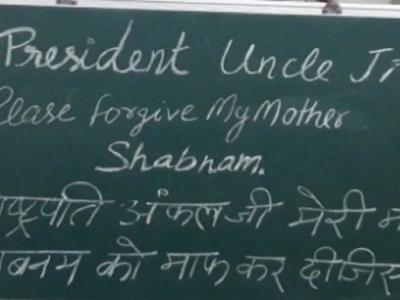 President Uncle Ji
Please forgive My Mother
Shabnam.
राष्ट्रपति अंकल जी मेरी
को माफ कर दीजिए